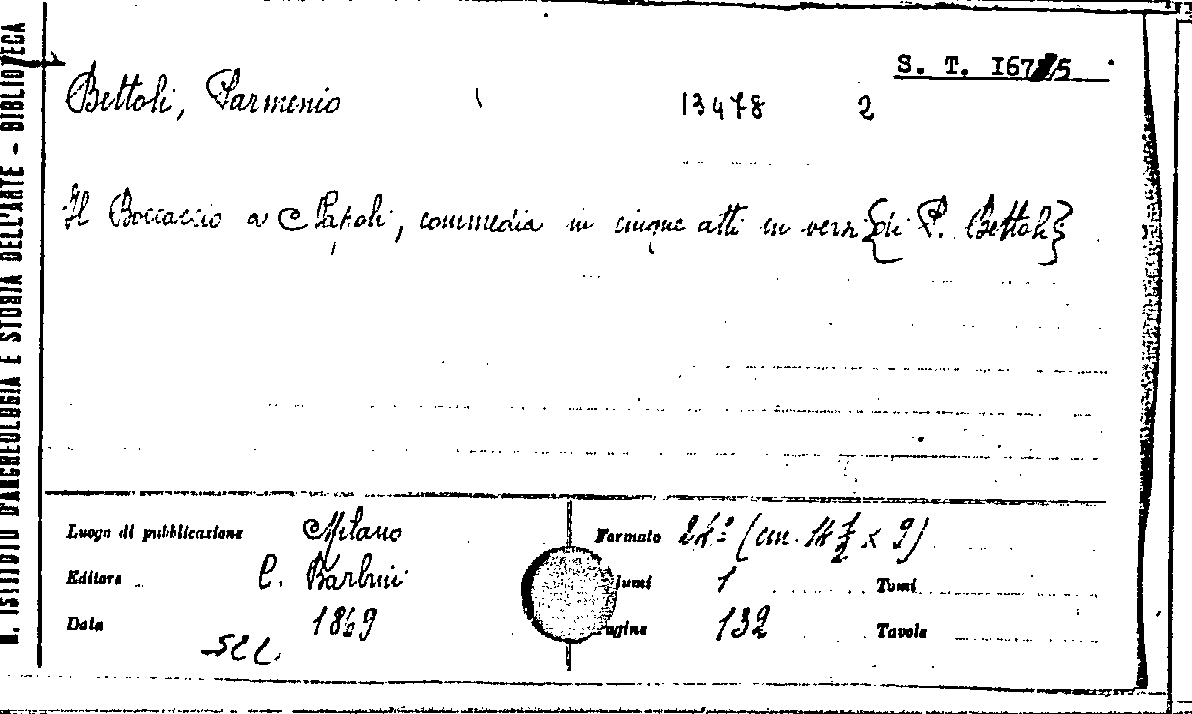 R. ISTITUTO D'ARCHEOLOGIA E STORIA DELL'ARTE - BIBLIOTECA
S. T. I675
Bettoli, Parmenio
13478 2
Il Boccaccio a Napoli, commedia in cinque atti in versi {di P. Bettoli}
Luogo di pubblicazione Milano
Formato 24° (cm. 14 1/2 x 9)
Editore C. Barbini
lumi 1 Tomi
Data 1869
agine 132 Tavole